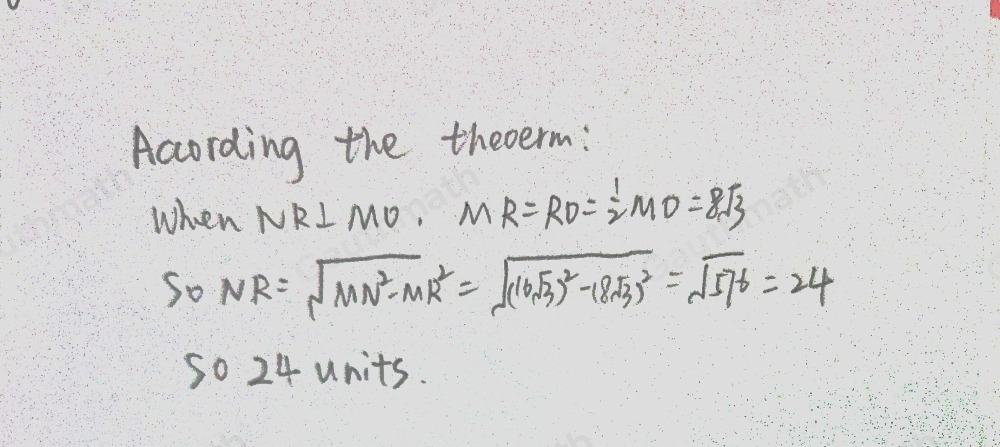 According the theoerm:
When NR⊥MO. MR=RO=½MO=8√3
So NR=√MN²-MR² = √(16√3)²-(8√3)² = √576 = 24
so 24 units.